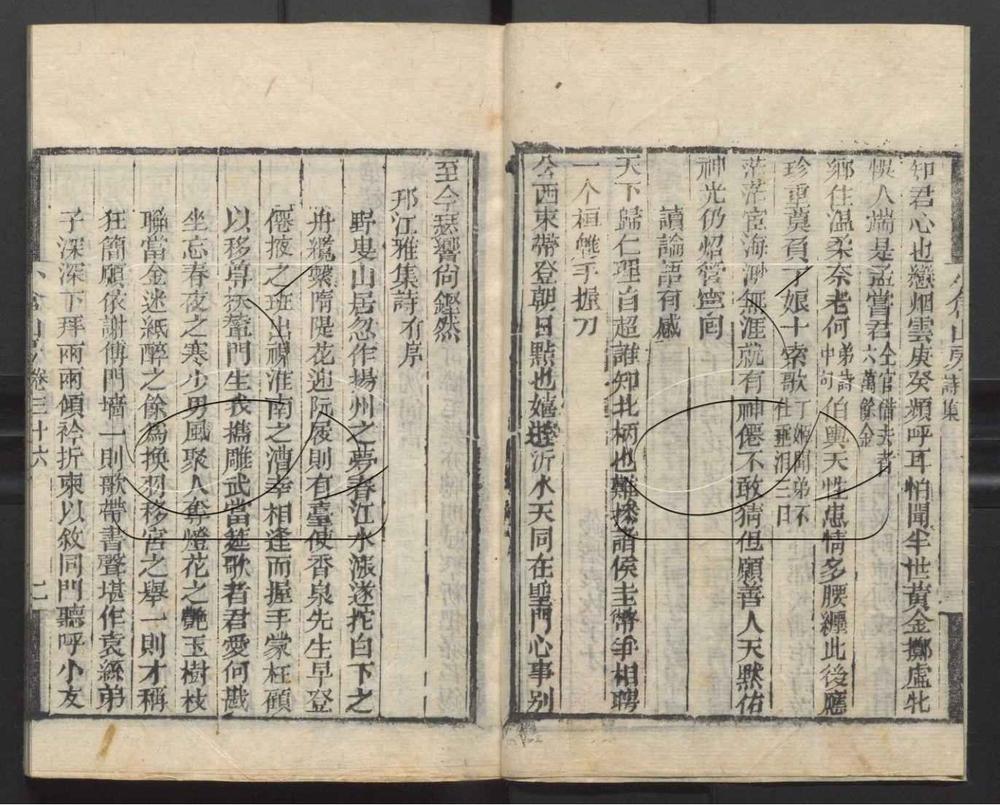 知君心也戀烟雲庚癸頻呼耳怕聞半世黃金擲虛牝
悞人端是孟嘗君全官借去者六萬餘金
鄉住溫柔奈老何弟詩中句伯輿天性患情多腰纏此後應
珍重莫負丁娘十索歌
茫茫宦海渺無涯就有神僊不敢猜但願善人天默佑
神光仍照管窰向
讀論語有感
天下歸仁理自超誰知北柄也難諸侯圭幣爭相聘
一个桓魋手握刀
公西束帶登朝日點也嬉遊沂水天同在聖門心事別
至今瑟響尚鏗然
邗江雅集詩有序
野叟山居忽作揚州之夢春江水漲遂拕白下之
舟纜繫隋隄花迎阮履則有臺使香泉先生早登
僊掖之班出視淮南之漕幸相逢而握手蒙枉顧
以移尊扶鼇門生我攜雕武當筵歌者君愛何戡
坐忘春夜之寒少男風聚人奪燈花之艷玉樹枝
聯當金迷紙醉之餘爲換羽移宮之舉一則才稱
狂簡願依謝傅門墻一則歌帶書聲堪作袁絲弟
子深深下拜兩兩傾衿折柬以敘同門聽呼小友
卷三十六